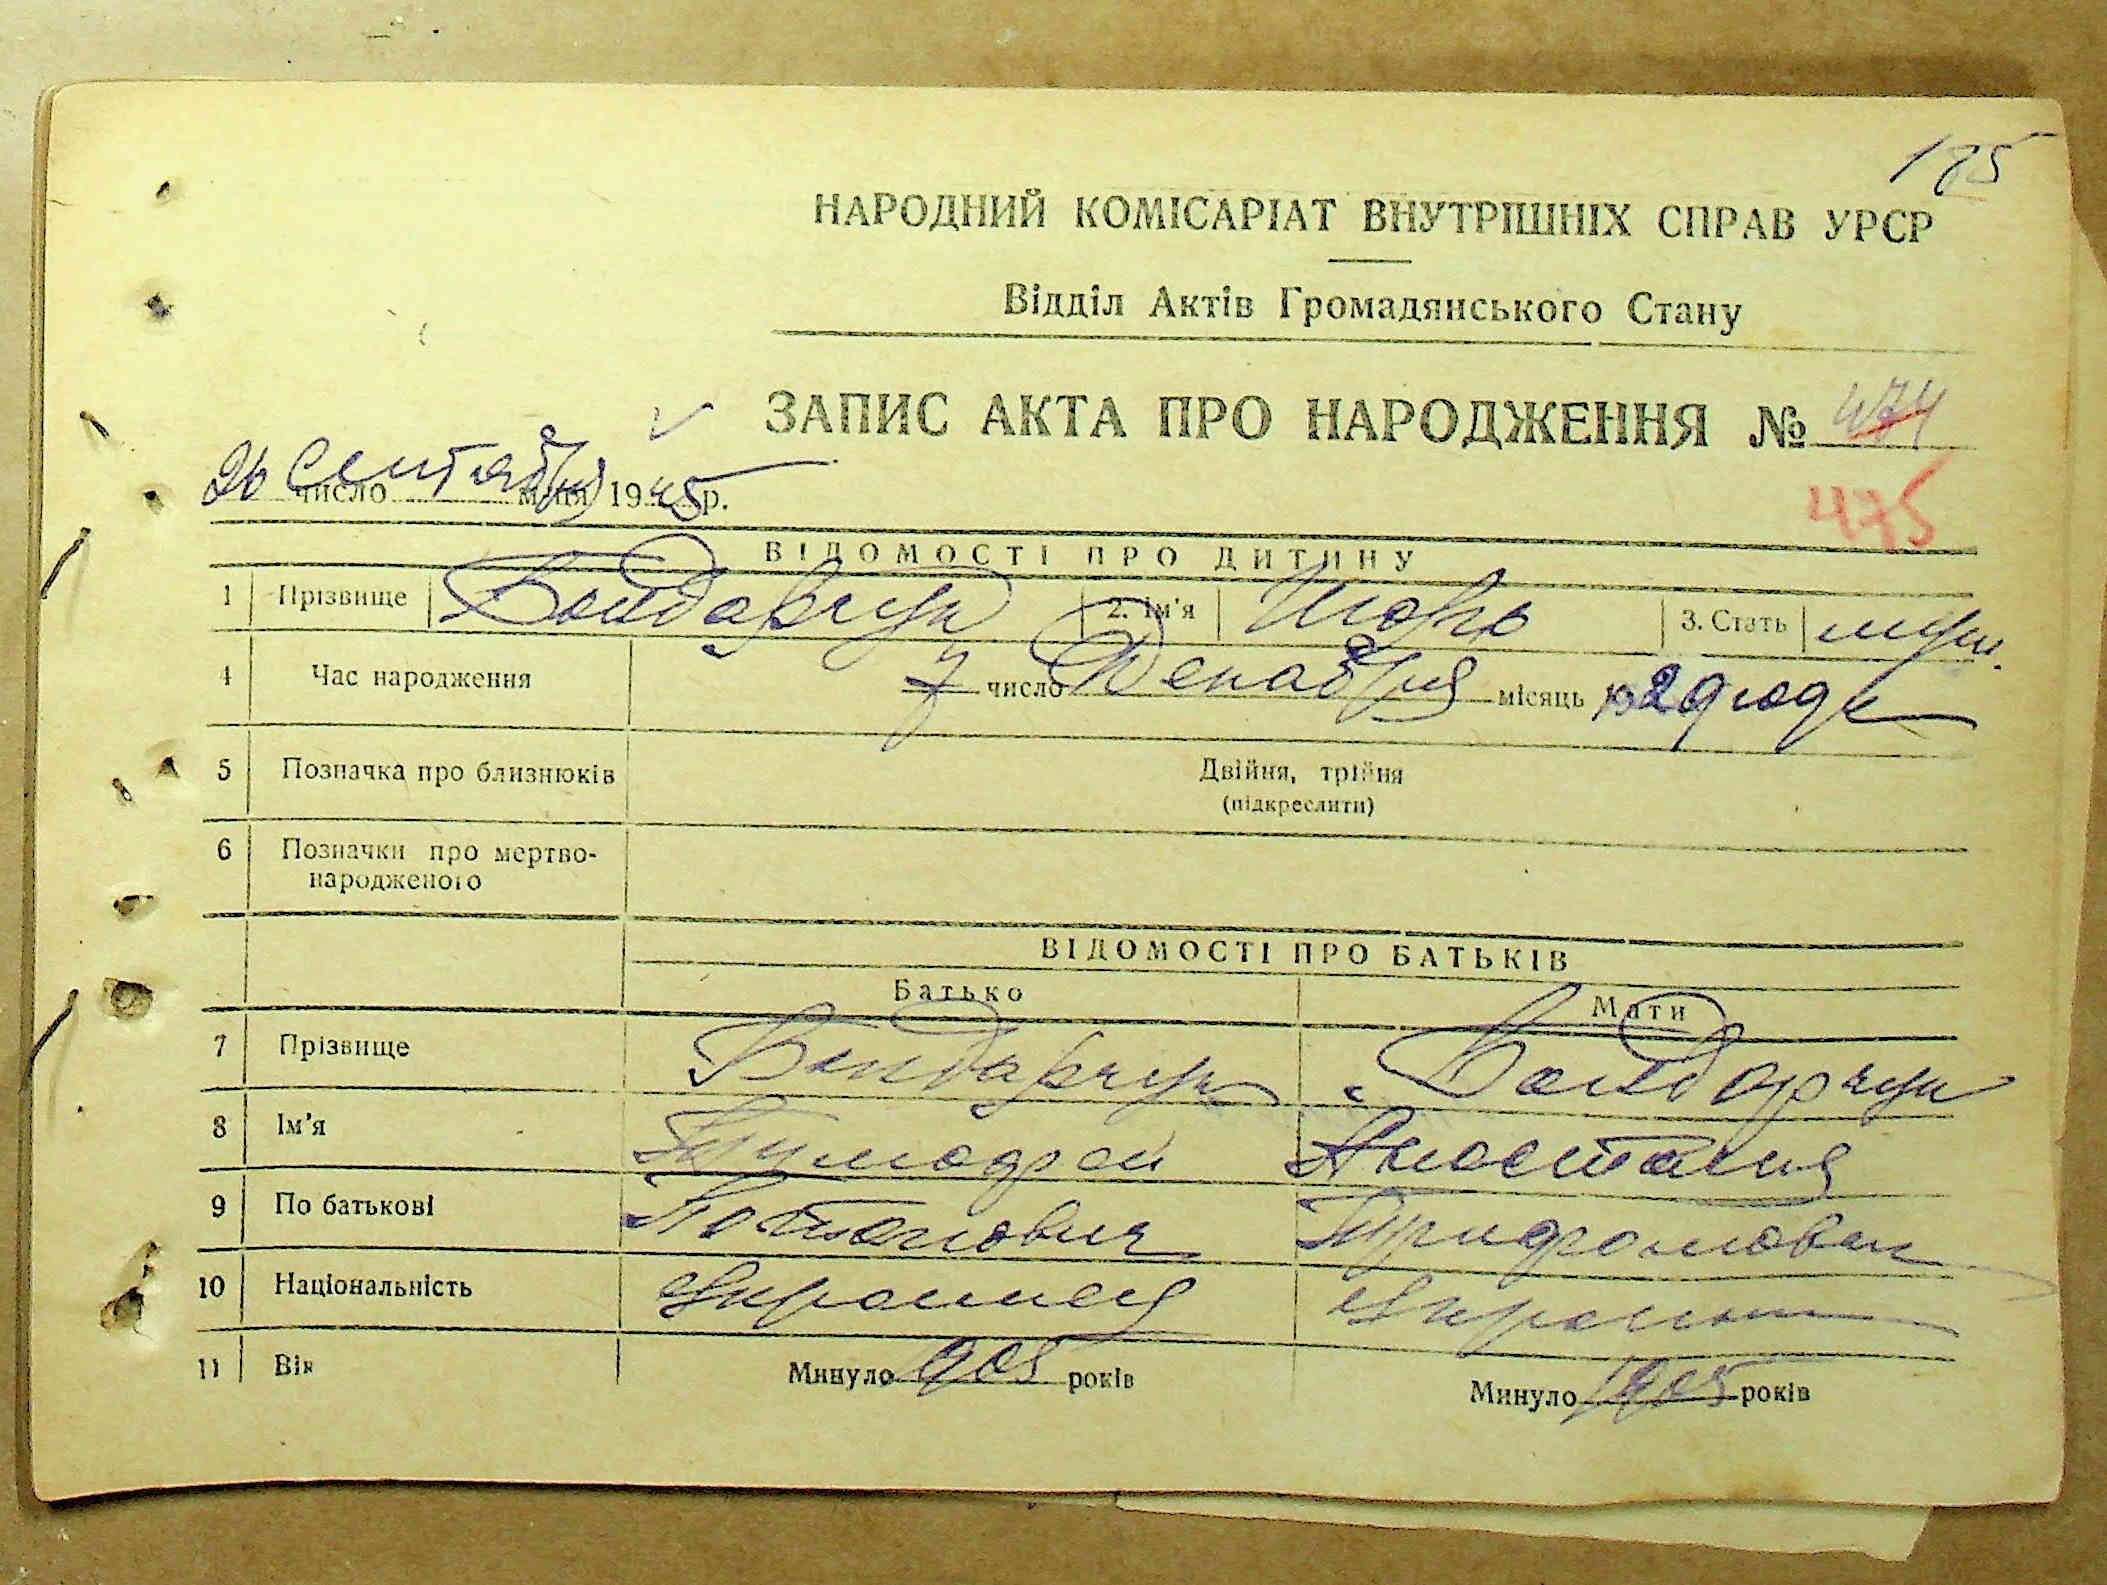 175
НАРОДНИЙ КОМІСАРІАТ ВНУТРІШНІХ СПРАВ УРСР
Відділ Актів Громадянського Стану
ЗАПИС АКТА ПРО НАРОДЖЕННЯ № 474
475
26 Сентября число місяця 1945 р.
ВІДОМОСТІ ПРО ДИТИНУ
1 Прізвище Бондарчук 2. Ім'я Игорь 3. Стать муж.
4 Час народження 7 число Декабря місяць 1929 года
5 Позначка про близнюків Двійня, трійня
(підкреслити)
6 Позначки про мертво-
народженого
ВІДОМОСТІ ПРО БАТЬКІВ
Батько Мати
7 Прізвище Бондарчук Бондарчук
8 Ім'я Тимофей Анастасия
9 По батькові Потапович Трифоновна
10 Національність Украинец
11 Вік Минуло 1905 років Минуло 1905 років